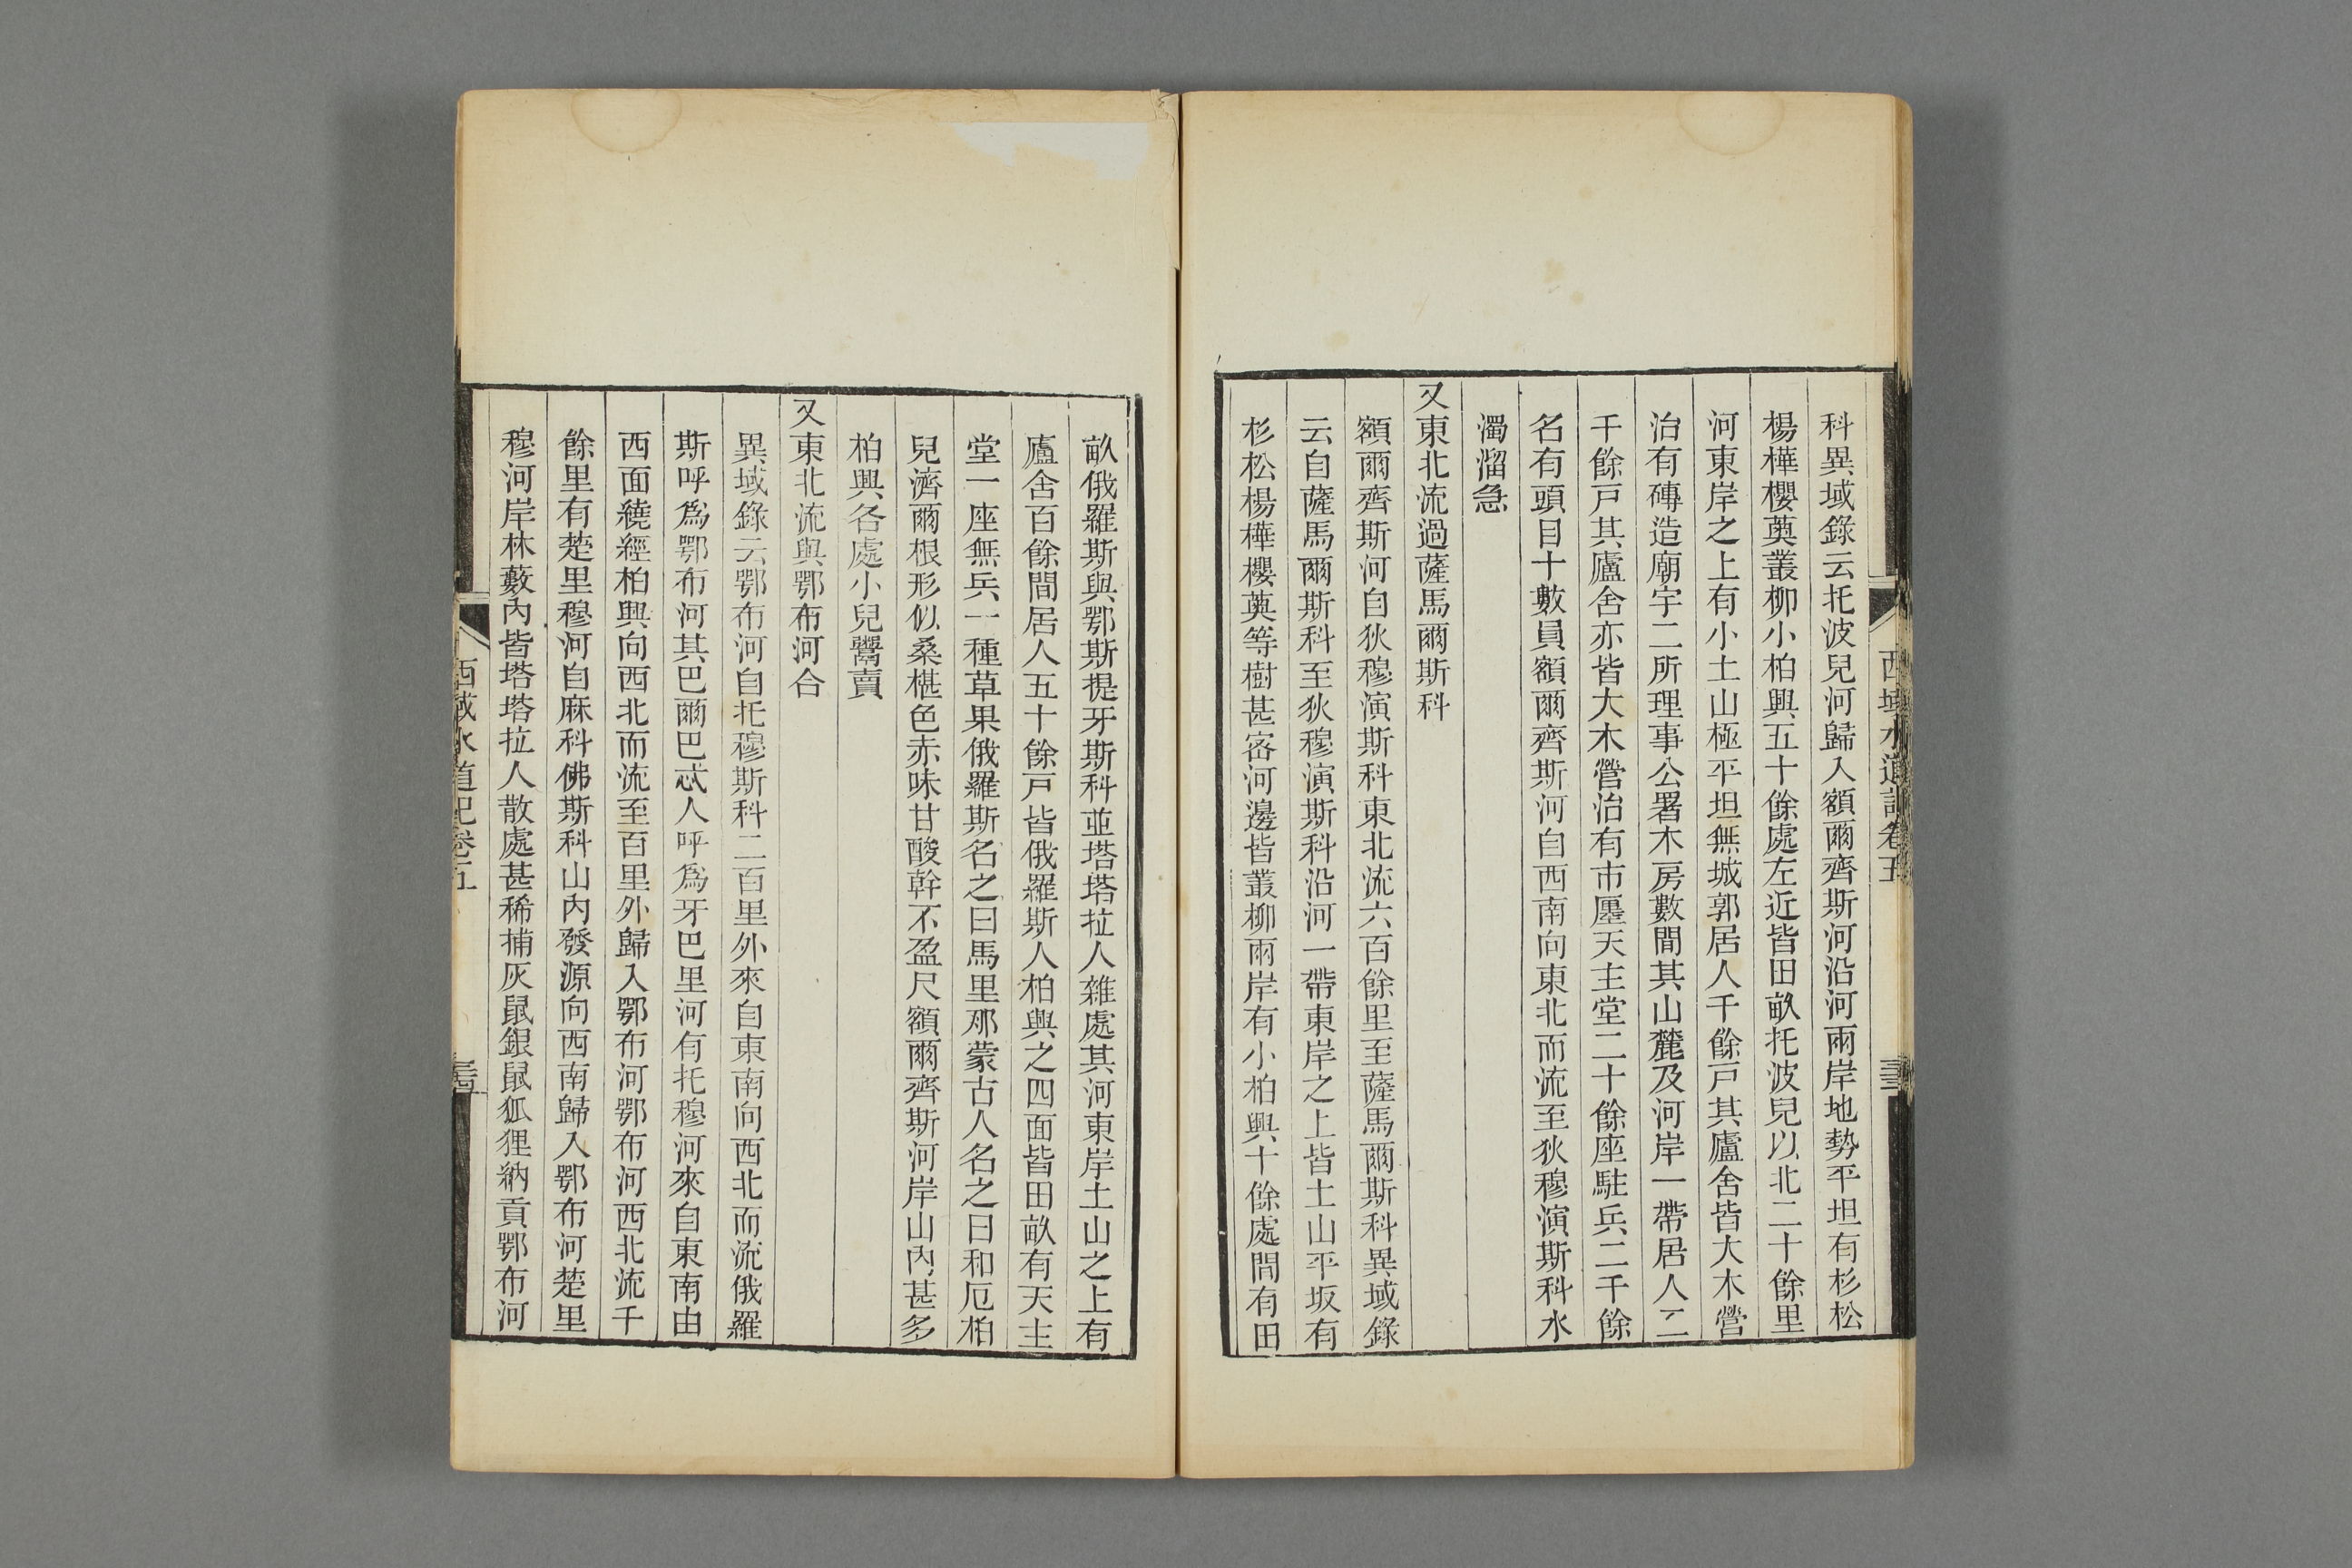 科異域錄云托波兒河歸入額爾齊斯河沿河兩岸地勢平坦有杉松
楊樺櫻薁叢柳小柏興五十餘處左近皆田畝托波兒以北二十餘里
河東岸之上有小土山極平坦無城郭居人千餘戸其廬舍皆大木營
治有磚造廟宇二所理事公署木房數間其山麓及河岸一帶居人二
千餘戸其廬舍亦皆大木營治有市廛天主堂二十餘座駐兵二千餘
名有頭目十數員額爾齊斯河自西南向東北而流至狄穆演斯科水
濁溜急
又東北流過薩馬爾斯科
額爾齊斯河自狄穆演斯科東北流六百餘里至薩馬爾斯科異域錄
云自薩馬爾斯科至狄穆演斯科沿河一帶東岸之上皆土山平坂有
杉松楊樺櫻薁等樹甚密河邊皆叢柳兩岸有小柏興十餘處間有田
西域水道記卷五
畝俄羅斯與鄂斯提牙斯科並塔塔拉人雜處其河東岸土山之上有
廬舍百餘間居人五十餘戸皆俄羅斯人柏興之四面皆田畝有天主
堂一座無兵一種草果俄羅斯名之曰馬里那蒙古人名之曰和厄柏
兒濟爾根形似桑椹色赤味甘酸幹不盈尺額爾齊斯河岸山內甚多
柏興各處小兒鬻賣
又東北流與鄂布河合
異域錄云鄂布河自托穆斯科二百里外來自東南向西北而流俄羅
斯呼爲鄂布河其巴爾巴忒人呼爲牙巴里河有托穆河來自東南由
西面繞經柏興向西北而流至百里外歸入鄂布河鄂布河西北流千
餘里有楚里穆河自麻科佛斯科山內發源向西南歸入鄂布河楚里
穆河岸林藪內皆塔塔拉人散處甚稀捕灰鼠銀鼠狐狸納貢鄂布河
西域水道記卷五